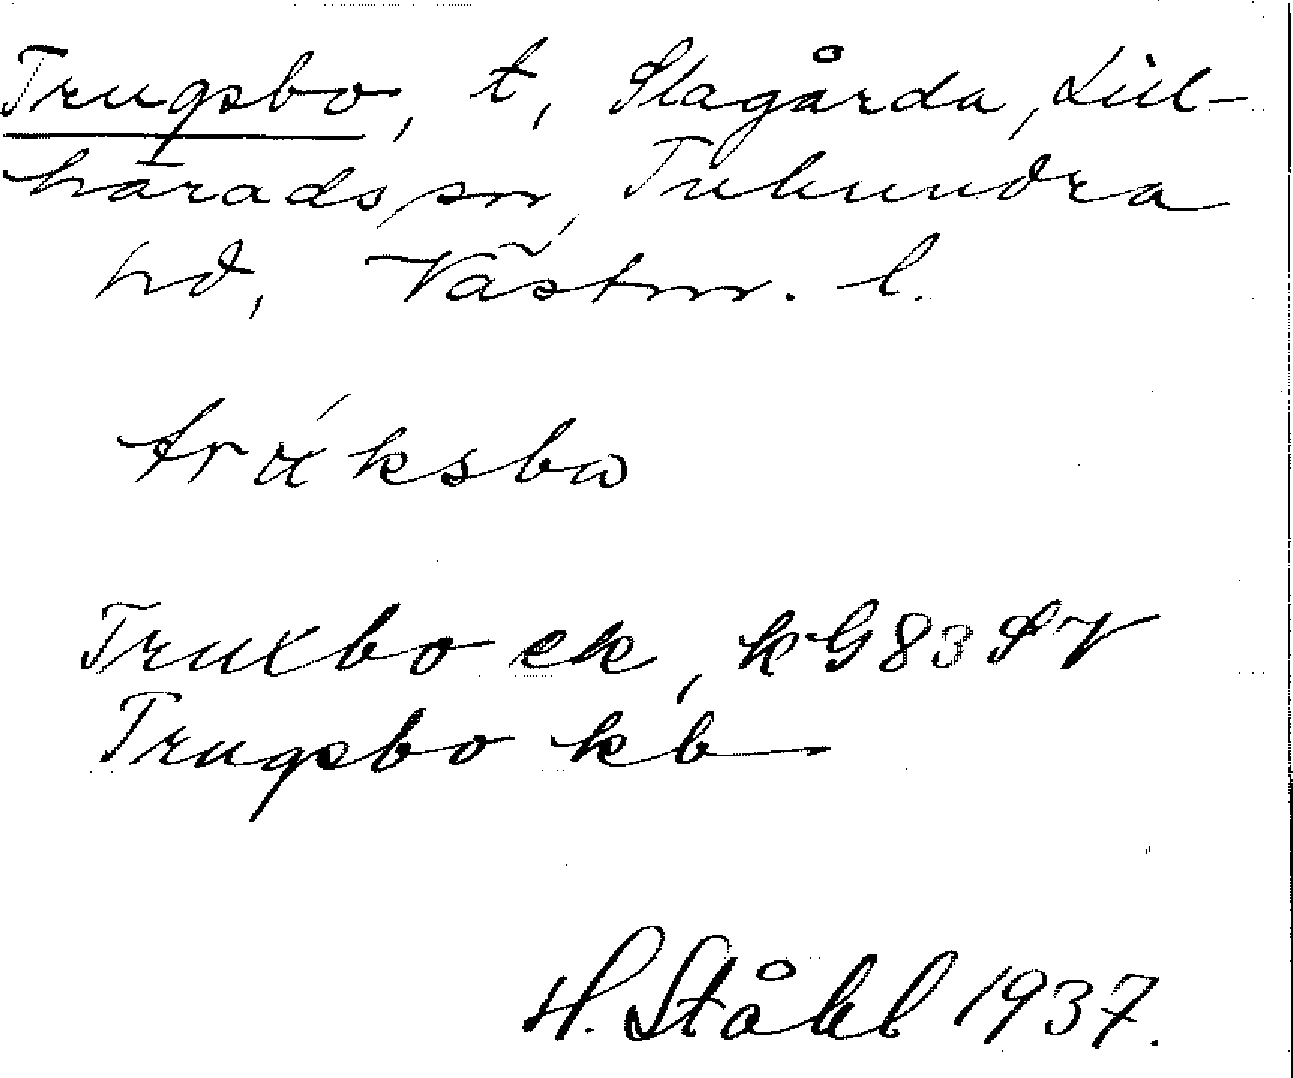 Trugsbo, t, Slagårda, Lill-
härads sn, Tuhundra
hd, Västm. l.
trúksbω
Truxbo ek, kG 83 SV
Trugsbo kb —
H. Ståhl 1937.